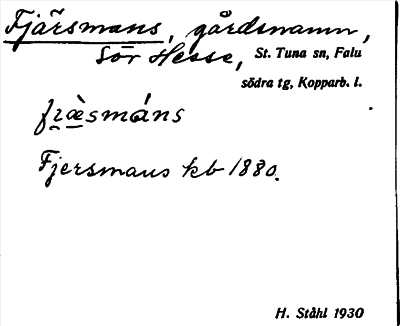 Fjärsmans, gårdsnamn,
Sör Hesse, St. Tuna sn, Falu
södra tg, Kopparb. l.
fræ̀smáns
Fjersmans kb 1880.
H. Ståhl 1930